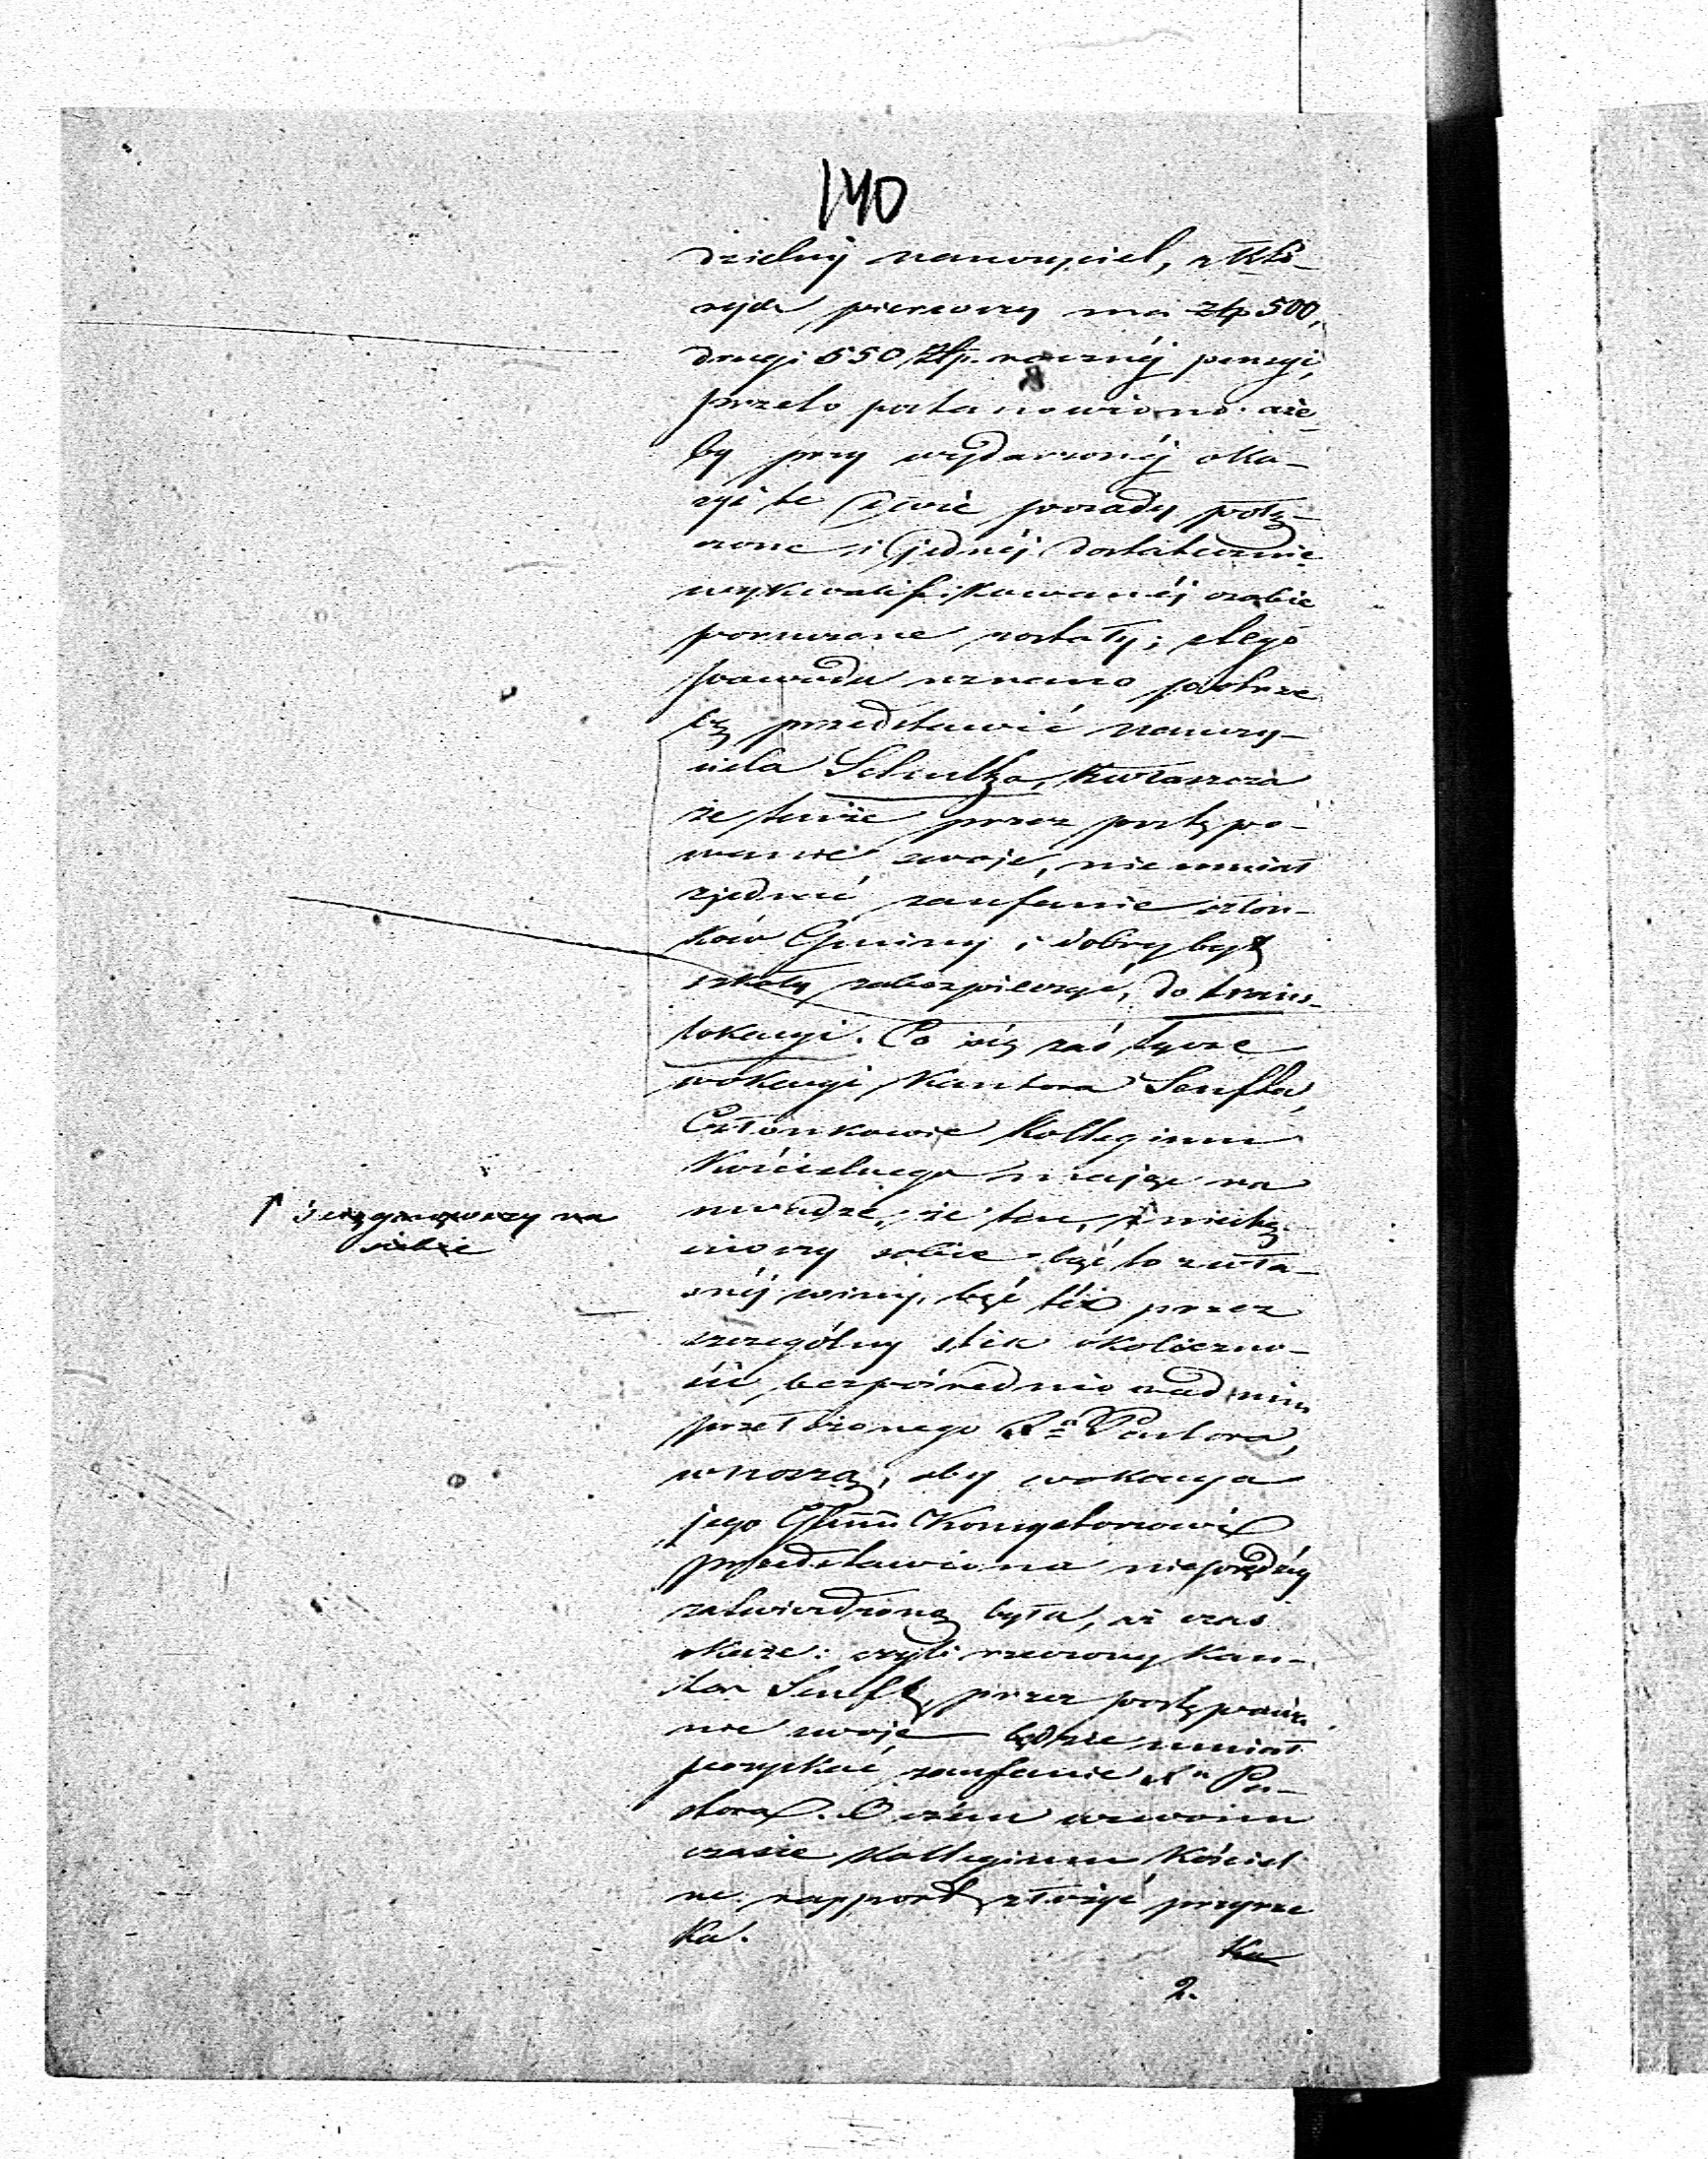 140
dzielny nauczyciel, z któ-
rych pierwszy ma złp 500,
drugi 550 złp. rocznéj pensyi,
przeto postanowiono aże-
by przy wydarzonéj oka-
zyi te dwie posady połą-
czone i jednéj dostatecznie
wykwalifikowanéj osobie
poruczone zostały; z tego
powodu uznano potrze
bę przedstawić nauczy-
ciela Schultza, zwłaszcza
że tenże przez postępo-
wanie swoje, nie umiał
zjednać zaufanie człon-
ków Gminy i dobry byt
szkoły zabezpieczyć, do trans-
lokacyi. Co się zaś tycze
wokacyi Kantora Senfta,
Członkowie Kollegium
Kościelnego mając na
uwadze, że ten,
sobie być to z wła-
snéj winy, być téż przez
szczególny okoliczno-
ści, bezpośrednio nad nim
przełożonego Pastora,
wnoszą, aby wokacya
jego Konsystorzowi
przedstawiona nieprędzéj
zatwierdzoną była, aż czas
okaże: czyli rzeczony Kan-
tor Senft, przez postępowa
nie swoje będzie umiał
pozyskać zaufanie Pa-
stora. O czém w swoim
czasie Kollegium Kościel
ne rapport złożyć przyrze
ka.
na
siebie
2.